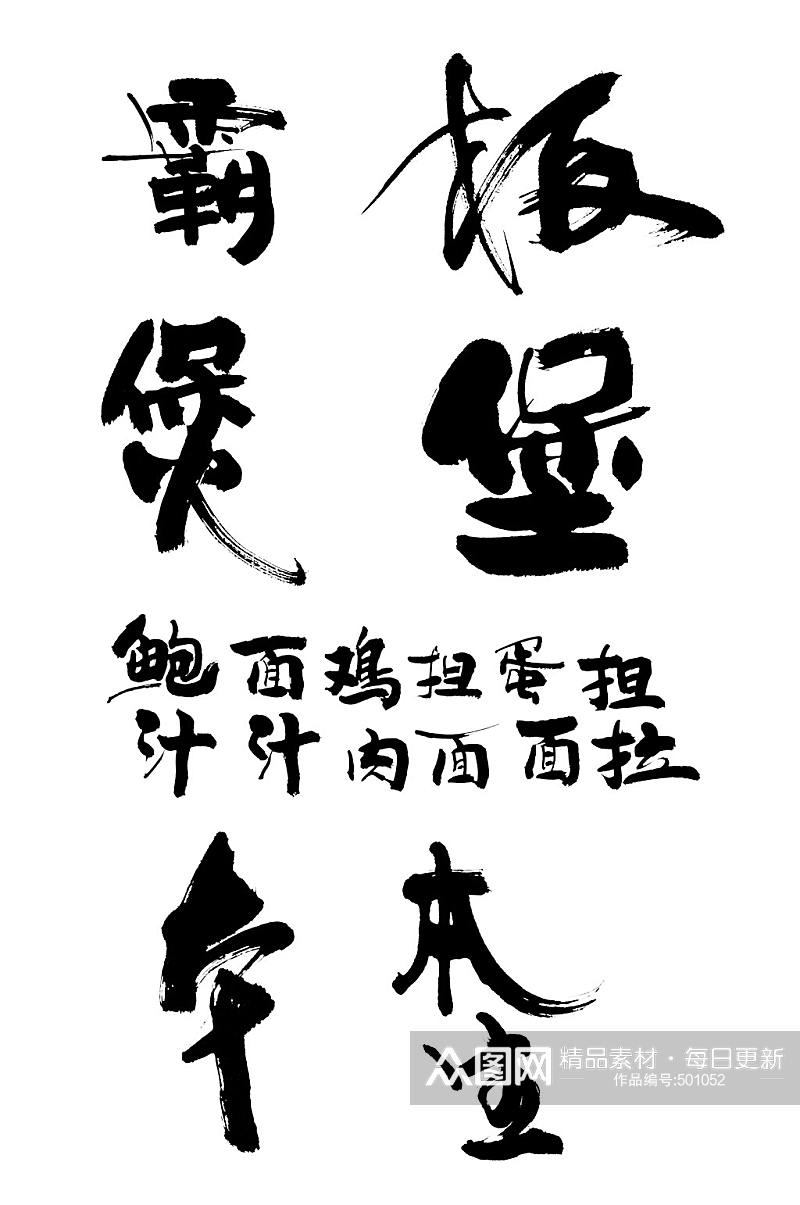 霸 板
煲 堡
鲍 面 鸡 担 蛋 担
汁 汁 肉 面 面 拉
本
众图网 精品素材·每日更新
作品编号:501052